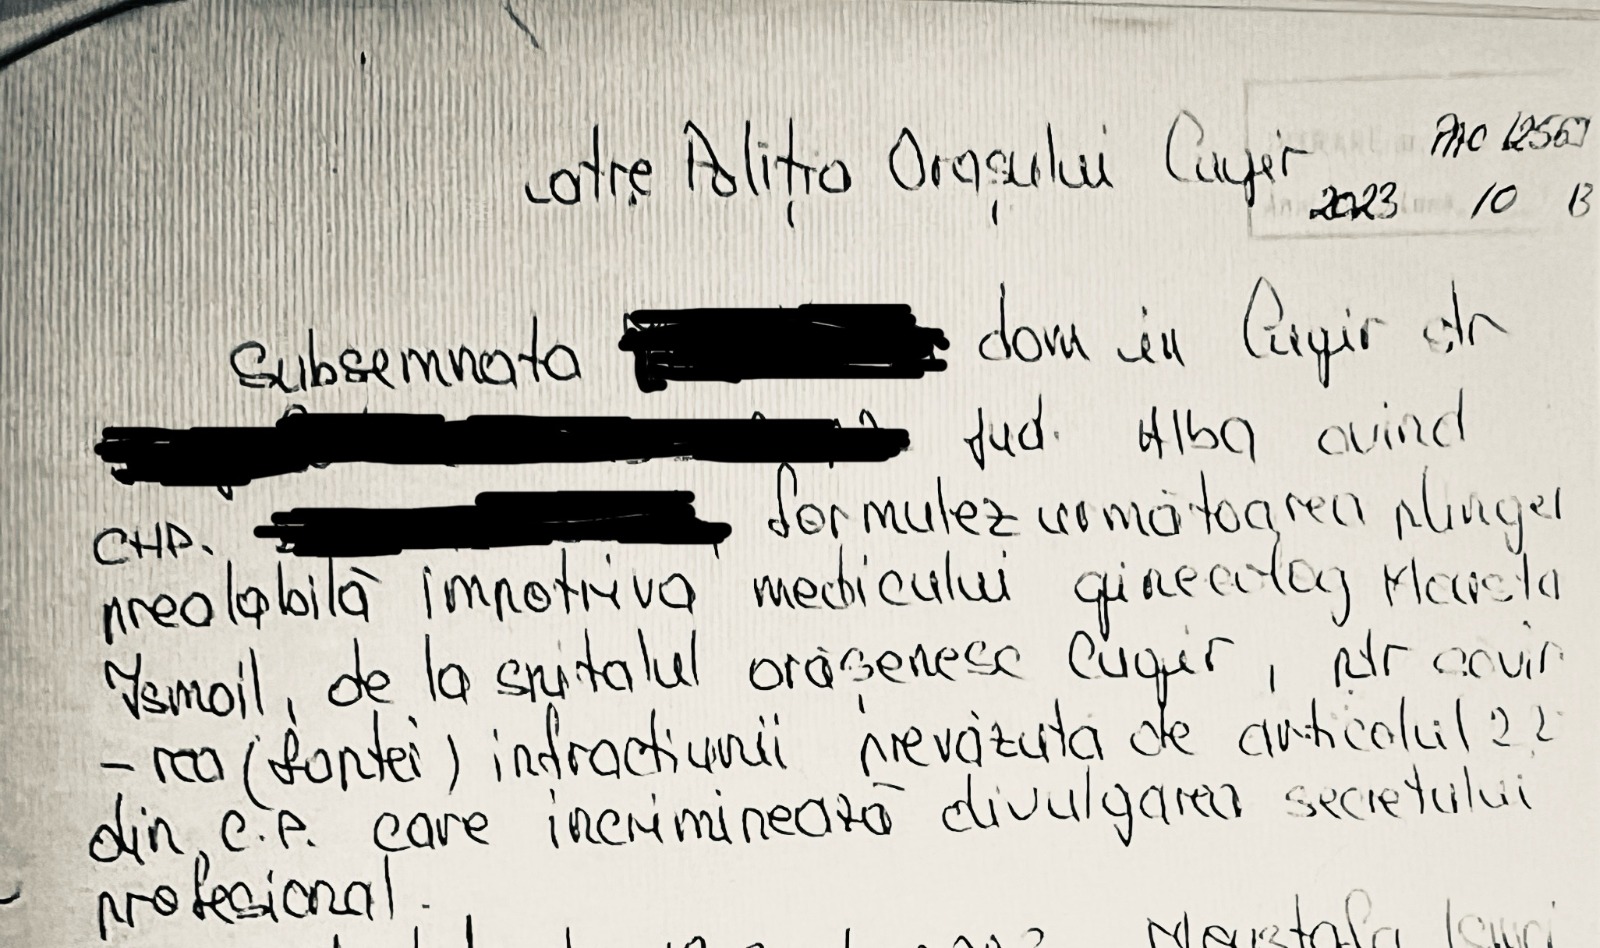 Catre Poliția Orașului Cugir
2023 10 13
Subsemnata dom in Cugir str
Jud. Alba avind
CNP. formulez următoarea plinger
prealabilă impotriva medicului ginecolog
Ismail, de la spitalul orășenesc Cugir, ptr săvir
-rea (faptei) infracțiunii prevăzuta de articolul 22
din C.P. care incriminează divulgarea secretului
profesional.